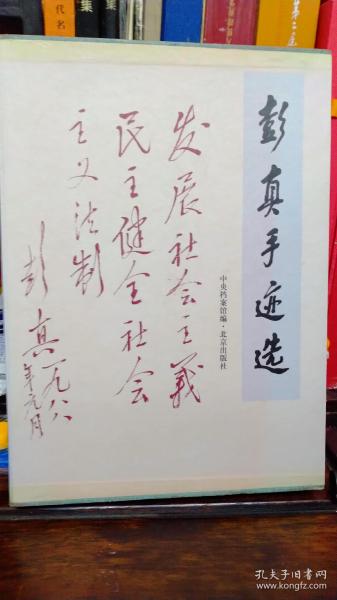 彭真手迹选
中央档案馆编·北京出版社
发展社会主義
民主健全社会
主义法制
彭真一九八八
年元月
代名
集
集
第二集
孔夫子旧书网